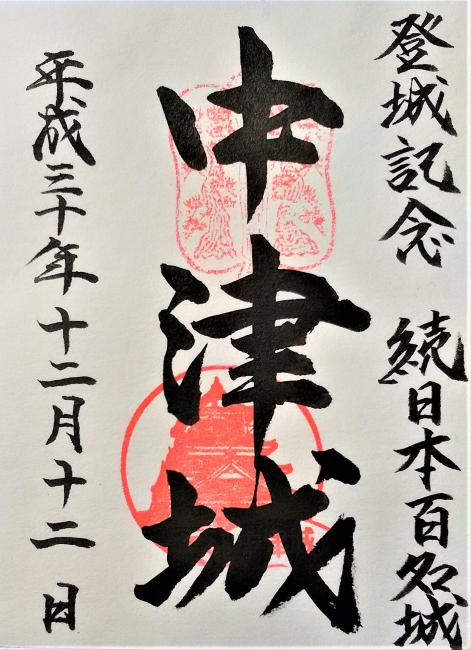 登城記念 続日本百名城
中津城
平成三十年十二月十二日